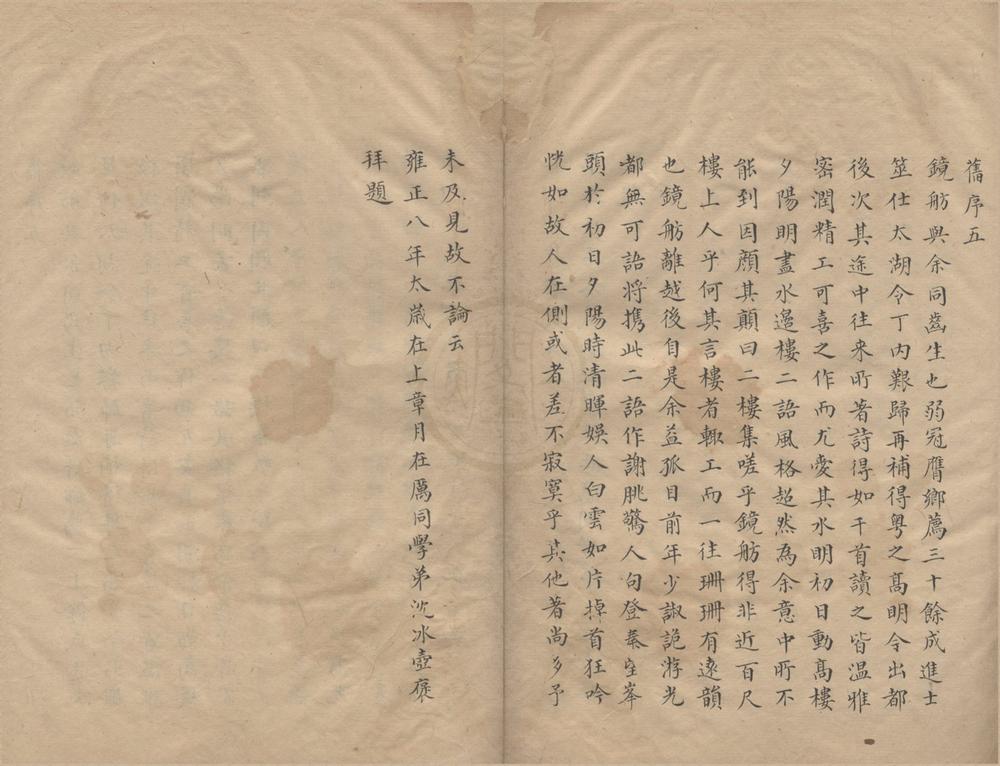 舊序五
鏡舫與余同齒生也弱冠膺鄉薦三十餘成進士
筮仕太湖令丁內艱歸再補得粤之髙明令出都
後次其途中往来所著詩得如干首讀之皆温雅
密潤精工可喜之作而尤愛其水明初日動髙樓
夕陽明盡水邊樓二語風格超然為余意中所不
能到因顔其顛曰二樓集嗟乎鏡舫得非近百尺
樓上人乎何其言樓者輙工而一往珊珊有遠韻
也鏡舫離越後自是余益孤目前年少諔詭游光
都無可語将携此二語作謝朓驚人句登秦望峯
頭於初日夕陽時清暉娛人白雲如片掉首狂吟
恍如故人在側或者差不寂寞乎其他著尚多予
未及見故不論云
雍正八年太嵗在上章月在厲同學弟沈冰壺褒
拜題